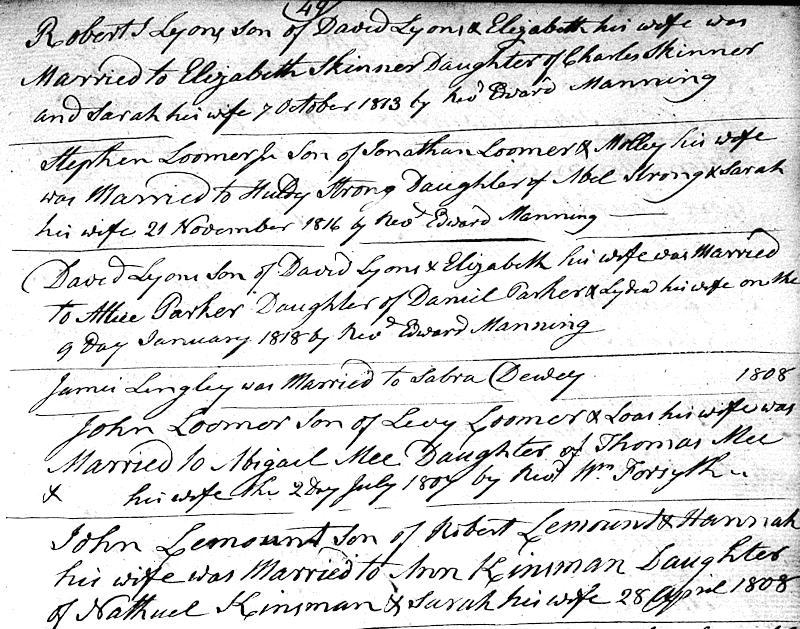 49
Robert S Lyons Son of David Lyons & Elizabeth his wife was
Married to Elizabeth Skinner Daughter of Charles Skinner
and Sarah his wife 7 October 1813 by Revd Edward Manning
Stephen Loomer Jr Son of Jonathan Loomer & Molley his wife
was Married to Huldy Strong Daughter of Abel Strong & Sarah
his wife 21 November 1816 by Revd Edward Manning
David Lyons Son of David Lyons & Elizabeth his wife was Married
to Allice Parker Daughter of Daniel Parker & Lydia his wife on the
9 Day January 1818 by Revd Edward Manning
James Lingley was Married to Sabra Dewey 1808
John Loomer Son of Levy Loomer & Loas his wife was
Married to Abigail Mee Daughter of Thomas Mee
& his wife the 2 Day July 1807 by Revd Wm Forsyth
John Lemount Son of Robert Lemount & Hannah
his wife was Married to Ann Kinsman Daughter
of Nathuel Kinsman & Sarah his wife 28 April 1808